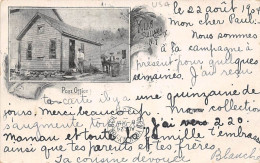 le 22 août 1904
Mon cher Paul.
Nous sommes
à la campagne à
présent pour quelques
semaines. J'ai reçu
Post Office
ta carte il y a une quinzaine de
jours. Merci beaucoup. Ma collection
s'augmente J'ai vers 220.
Maman et toute la famille t'embrasse
ainsi que tes parents et tes frères
Ta cousine dévouée Blanch